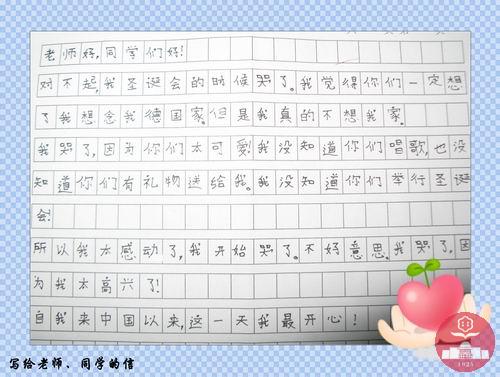 老师好,同学们好!
对不起我圣诞会的时候哭了。我觉得你们一定想
了我想念我德国家。但是我真的不想我家。
我哭了,因为你们太可爱!我没知道你们唱歌,也没
知道你们有礼物送给我。我没知道你们举行圣诞
会!
所以我太感动了,我开始哭了。不好意思。我哭了,因
为我太高兴了!
自我来中国以来,这一天我最开心!
写给老师、同学的信
1925